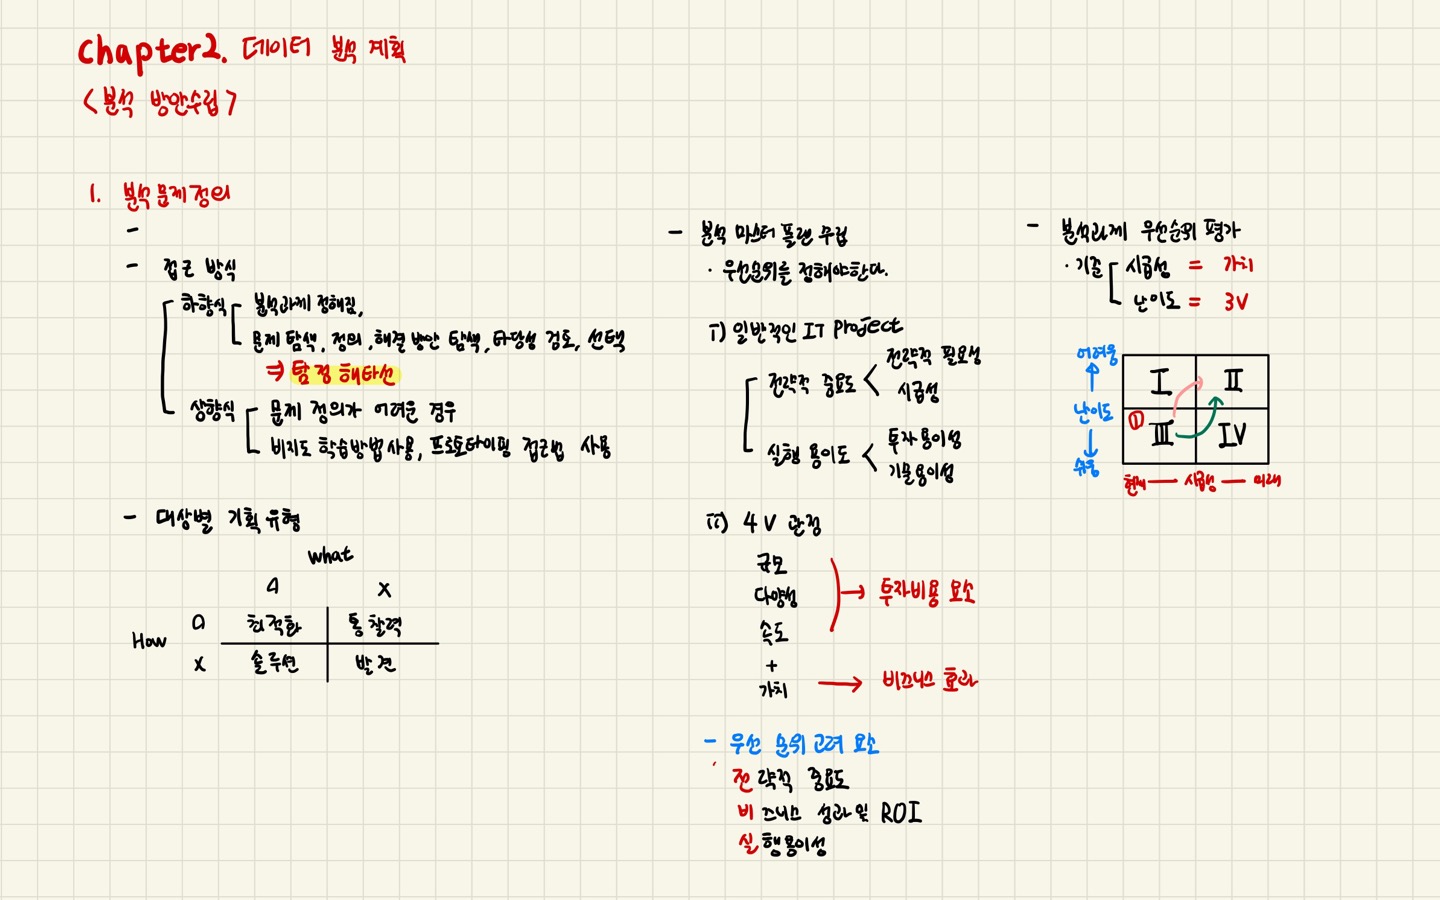 Chapter2. 데이터 분석 계획
<분석 방안수립>
1. 분석문제정의
-
- 접근 방식
하향식
분석과제 정해짐,
문제 탐색, 정의, 해결방안 탐색, 타당성 검토, 선택
⇒ 탐정 해타선
상향식
문제 정의가 어려운 경우
비지도 학습방법사용, 프로토타이핑 접근법 사용
- 대상별 기획유형
what
O X
How
O 최적화 통찰력
X 솔루션 발견
- 분석 마스터 플랜 수립
· 우선순위를 정해야한다.
i) 일반적인 IT project
전략적 중요도 < 전략적 필요성
시급성
실행 용이도 < 투자용이성
기술용이성
ii) 4V 관점
규모
다양성
속도
→ 투자비용 요소
+
가치 → 비즈니스 효과
- 우선 순위 고려 요소
전략적 중요도
비즈니스 성과및 ROI
실행용이성
- 분석과제 우선순위 평가
· 기준
시급성 = 가치
난이도 = 3V
어려움
난이도
쉬움
I II
① III IV
현재 — 시급성 — 미래